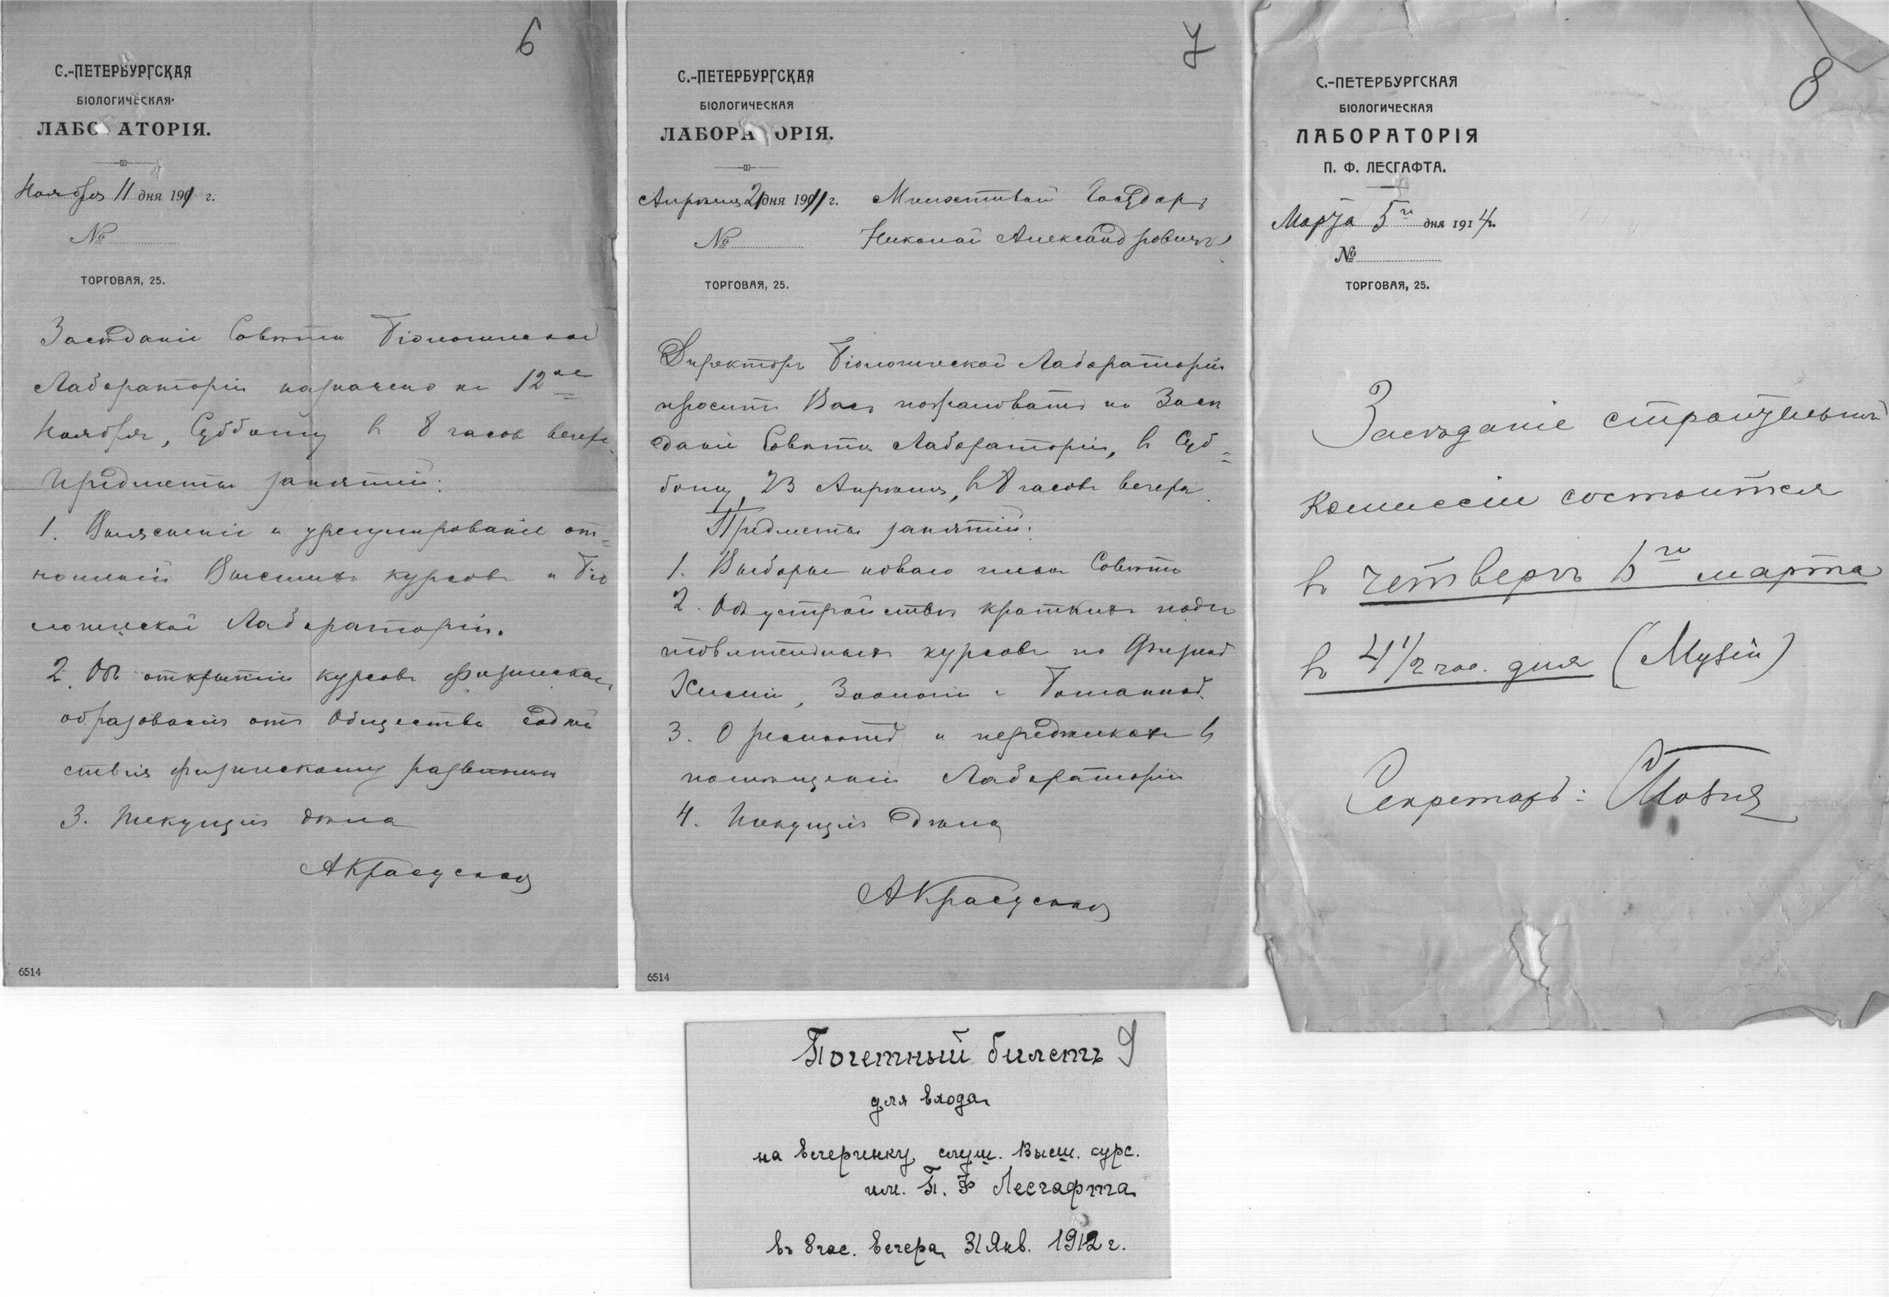 6
С.-ПЕТЕРБУРГСКАЯ
БІОЛОГИЧЕСКАЯ
ЛАБО АТОРІЯ.
Ноября 11 дня 1911 г.
№
ТОРГОВАЯ, 25.
Засѣданіе Совѣта Біологической
Лабораторіи назначено на 12ое
Ноября, Субботу въ 8 часов вечера.
Предметы занятій:
1. Выясненіе и урегулированіе от=
ношеній Высшихъ курсовъ и Біо
логической Лабораторіи.
2. Объ открытіи курсовъ физическаго
образованія отъ Общества содѣй
ствія физическому развитію
3. Текущія дѣла
АКрасуская
6514
7
С.-ПЕТЕРБУРГСКАЯ
БІОЛОГИЧЕСКАЯ
ЛАБОРА ОРІЯ.
Апрѣля 21 дня 1911 г.
№
ТОРГОВАЯ, 25.
Милостивый Государь
Николай Александровичъ
Директоръ Біологической Лабораторіи
проситъ Васъ пожаловать на Засѣ
даніе Совѣта Лабораторіи, въ Суб=
боту, 23 Апрѣля, въ 8 часовъ вечера.
Предметы занятій:
1. Выборы новаго члена Совѣта
2. Объ устройствѣ краткихъ подго
товительныхъ курсовъ по Физикѣ
Химіи, Зоологіи и Ботаникѣ.
3. О ремонтѣ и передѣлкахъ въ
помѣщеніи Лабораторіи
4. Текущія дѣла
АКрасуская
6514
8
С.-ПЕТЕРБУРГСКАЯ
БІОЛОГИЧЕСКАЯ
ЛАБОРАТОРІЯ
П. Ф. ЛЕСГАФТА.
Марта 5го дня 1914 г.
№
ТОРГОВАЯ, 25.
Засѣданіе строительной
комиссіи состоится
въ четвергъ 6го марта
въ 4 1/2 час. дня (Музей)
Секретарь:
Почетный билетъ 9
для входа
на вечеринку слуш. Высш. курс.
им. П. Ф Лесгафта
въ 8 час. вечера 31 Янв. 1912 г.